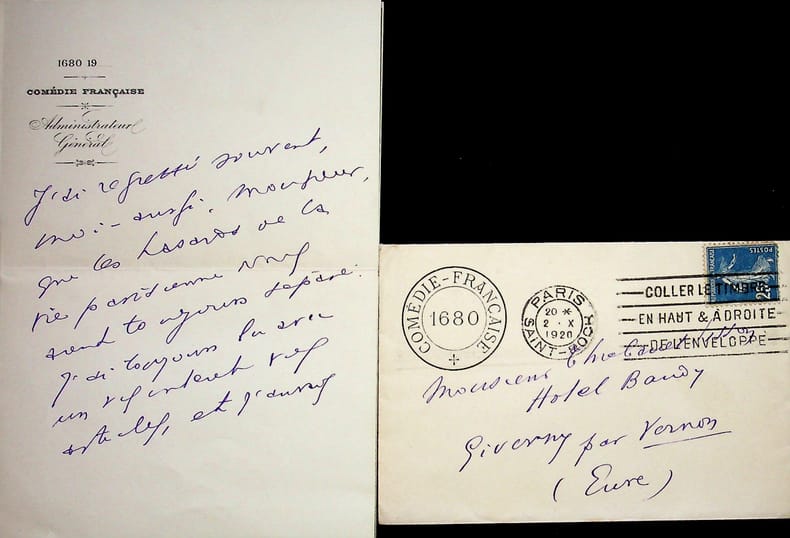 1680 19
COMÉDIE FRANÇAISE
Administrateur
Général
J'ai regretté souvent,
moi-aussi, Monsieur,
que les hasards de la
vie parisienne nous
aient toujours séparés.
J'ai toujours lu avec
un vif intérêt vos
articles, et j'aurais
COMÉDIE-FRANÇAISE
1680
PARIS
20 *
2 · X
1920
SAINT-ROCH
COLLER LE TIMBRE
EN HAUT & À DROITE
DE L'ENVELOPPE
POSTES
Monsieur
Hotel Baudy
Giverny par Vernon
(Eure)